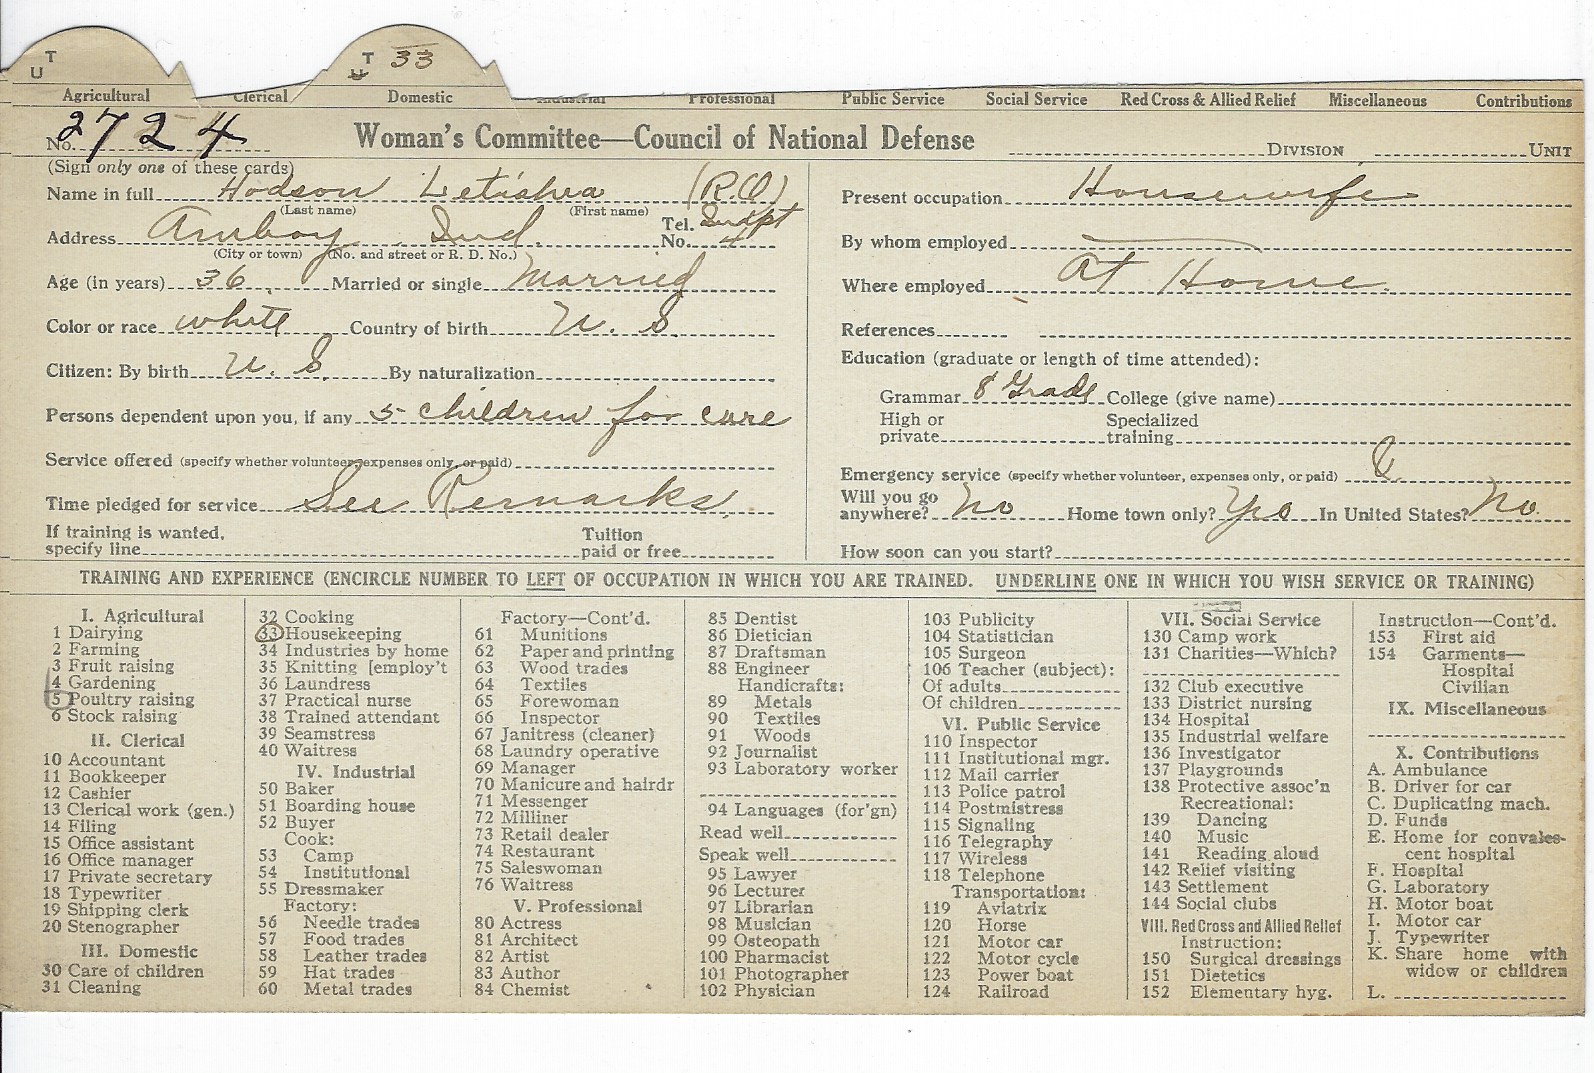 T
U
T 33
U
Agricultural Clerical Domestic Industrial Professional Public Service Social Service Red Cross & Allied Relief Miscellaneous Contributions
No. 2724 Woman's Committee—Council of National Defense DIVISION UNIT
(Sign only one of these cards)
Name in full Hodson Letishea (R.O)
(Last name) (First name)
Address Amboy Ind. Tel. No. Indpt 4
(City or town) (No. and street or R. D. No.)
Age (in years) 36. Married or single Married
Color or race white Country of birth U. S.
Citizen: By birth U. S. By naturalization
Persons dependent upon you, if any 5 children for care
Service offered (specify whether volunteer, expenses only, or paid)
Time pledged for service See Remarks.
If training is wanted, specify line Tuition paid or free
Present occupation Housewife
By whom employed
Where employed At Home.
References
Education (graduate or length of time attended):
Grammar 8 Grade College (give name)
High or private Specialized training
Emergency service (specify whether volunteer, expenses only, or paid)
Will you go anywhere? No Home town only? Yes In United States? No.
How soon can you start?
TRAINING AND EXPERIENCE (ENCIRCLE NUMBER TO LEFT OF OCCUPATION IN WHICH YOU ARE TRAINED. UNDERLINE ONE IN WHICH YOU WISH SERVICE OR TRAINING)
I. Agricultural
1 Dairying
2 Farming
3 Fruit raising
4 Gardening
5 Poultry raising
6 Stock raising
II. Clerical
10 Accountant
11 Bookkeeper
12 Cashier
13 Clerical work (gen.)
14 Filing
15 Office assistant
16 Office manager
17 Private secretary
18 Typewriter
19 Shipping clerk
20 Stenographer
III. Domestic
30 Care of children
31 Cleaning
32 Cooking
33 Housekeeping
34 Industries by home
35 Knitting [employ't
36 Laundress
37 Practical nurse
38 Trained attendant
39 Seamstress
40 Waitress
IV. Industrial
50 Baker
51 Boarding house
52 Buyer
Cook:
53 Camp
54 Institutional
55 Dressmaker
Factory:
56 Needle trades
57 Food trades
58 Leather trades
59 Hat trades
60 Metal trades
Factory—Cont'd.
61 Munitions
62 Paper and printing
63 Wood trades
64 Textiles
65 Forewoman
66 Inspector
67 Janitress (cleaner)
68 Laundry operative
69 Manager
70 Manicure and hairdr
71 Messenger
72 Milliner
73 Retail dealer
74 Restaurant
75 Saleswoman
76 Waitress
V. Professional
80 Actress
81 Architect
82 Artist
83 Author
84 Chemist
85 Dentist
86 Dietician
87 Draftsman
88 Engineer
Handicrafts:
89 Metals
90 Textiles
91 Woods
92 Journalist
93 Laboratory worker
94 Languages (for'gn)
Read well
Speak well
95 Lawyer
96 Lecturer
97 Librarian
98 Musician
99 Osteopath
100 Pharmacist
101 Photographer
102 Physician
103 Publicity
104 Statistician
105 Surgeon
106 Teacher (subject):
Of adults
Of children
VI. Public Service
110 Inspector
111 Institutional mgr.
112 Mail carrier
113 Police patrol
114 Postmistress
115 Signaling
116 Telegraphy
117 Wireless
118 Telephone
Transportation:
119 Aviatrix
120 Horse
121 Motor car
122 Motor cycle
123 Power boat
124 Railroad
VII. Social Service
130 Camp work
131 Charities—Which?
132 Club executive
133 District nursing
134 Hospital
135 Industrial welfare
136 Investigator
137 Playgrounds
138 Protective assoc'n
Recreational:
139 Dancing
140 Music
141 Reading aloud
142 Relief visiting
143 Settlement
144 Social clubs
VIII. Red Cross and Allied Relief
Instruction:
150 Surgical dressings
151 Dietetics
152 Elementary hyg.
Instruction—Cont'd.
153 First aid
154 Garments—
Hospital
Civilian
IX. Miscellaneous
X. Contributions
A. Ambulance
B. Driver for car
C. Duplicating mach.
D. Funds
E. Home for convales-
cent hospital
F. Hospital
G. Laboratory
H. Motor boat
I. Motor car
J. Typewriter
K. Share home with
widow or children
L.